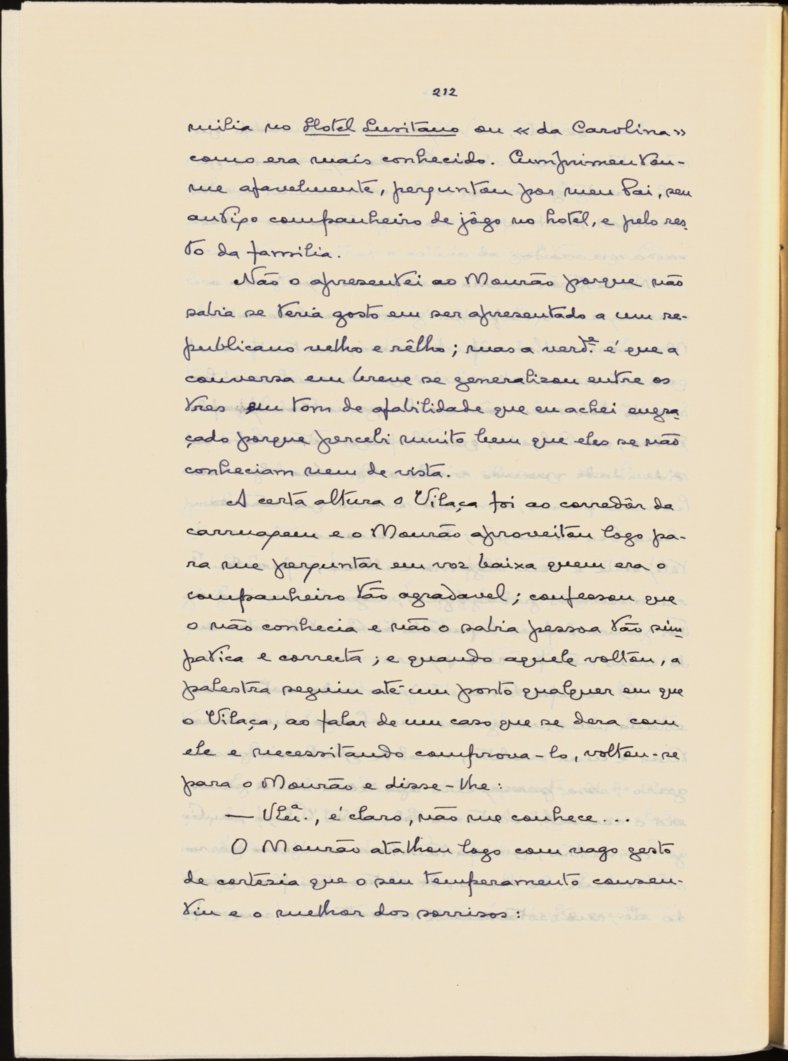 212
milia no Hotel Lusitano ou «da Carolina»
como era mais conhecido. Cumprimentou-
me afavelmente, perguntou por meu Pai, seu
antigo companheiro de jôgo no hotel, e pelo res-
to da familia.
Não o apresentei ao Mourão porque não
sabia se teria gosto em ser apresentado a um re-
publicano velho e rêlho; mas a verd.ª é que a
conversa em breve se generalizou entre os
tres em tom de afabilidade que eu achei engra-
çado porque percebi muito bem que eles se não
conheciam nem de vista.
A certa altura o Vilaça foi ao corredôr da
carruagem e o Mourão aproveitou logo pa-
ra me perguntar em voz baixa quem era o
companheiro tão agradavel; confessou que
o não conhecia e não o sabia pessoa tão sim-
patica e correcta; e quando aquele voltou, a
palestra seguiu até um ponto qualquer em que
o Vilaça, ao falar de um caso que se dera com
ele e necessitando comprova-lo, voltou-se
para o Mourão e disse-lhe:
— V. Ex.ª, é claro, não me conhece...
O Mourão atalhou logo com vago gesto
de cortesia que o seu temperamento consen-
tiu e o melhor dos sorrisos: